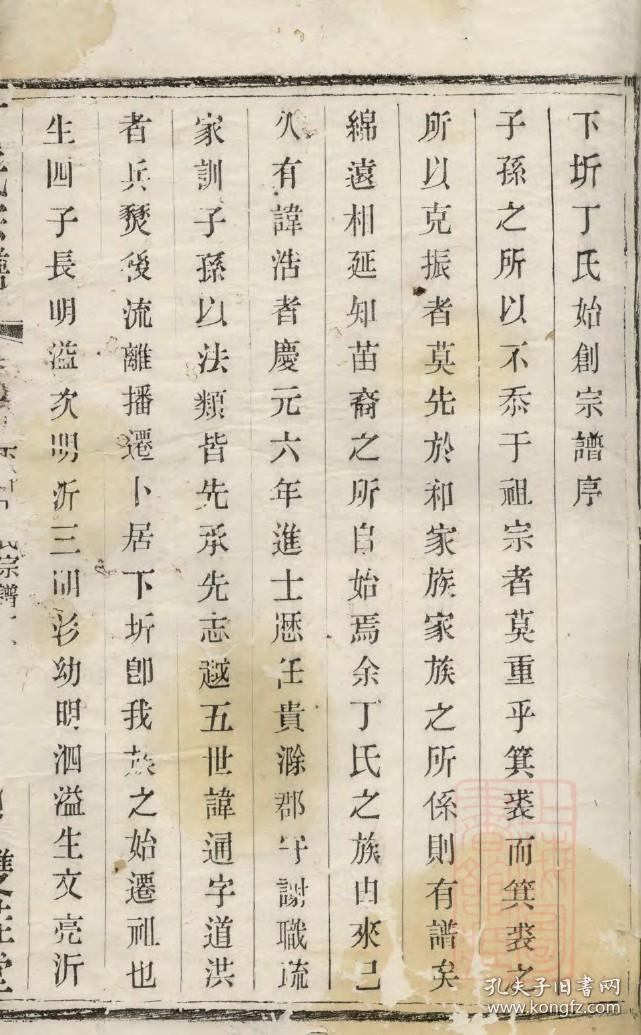 下圻丁氏始創宗譜序
子孫之所以不忝于祖宗者莫重乎箕裘而箕裘之
所以克振者莫先於和家族家族之所係則有譜矣
綿遠相延知苗裔之所自始焉余丁氏之族由來已
久有諱浩者慶元六年進士歷任貴滁郡守謝職疏
家訓子孫以法類皆先承先志越五世諱通字道洪
者兵燹後流離播遷卜居下圻卽我族之始遷祖也
生四子長明溢次明沂三明彭幼明泗溢生文亮沂
氏宗譜
雙桂堂
孔夫子旧书网
www.kongfz.com